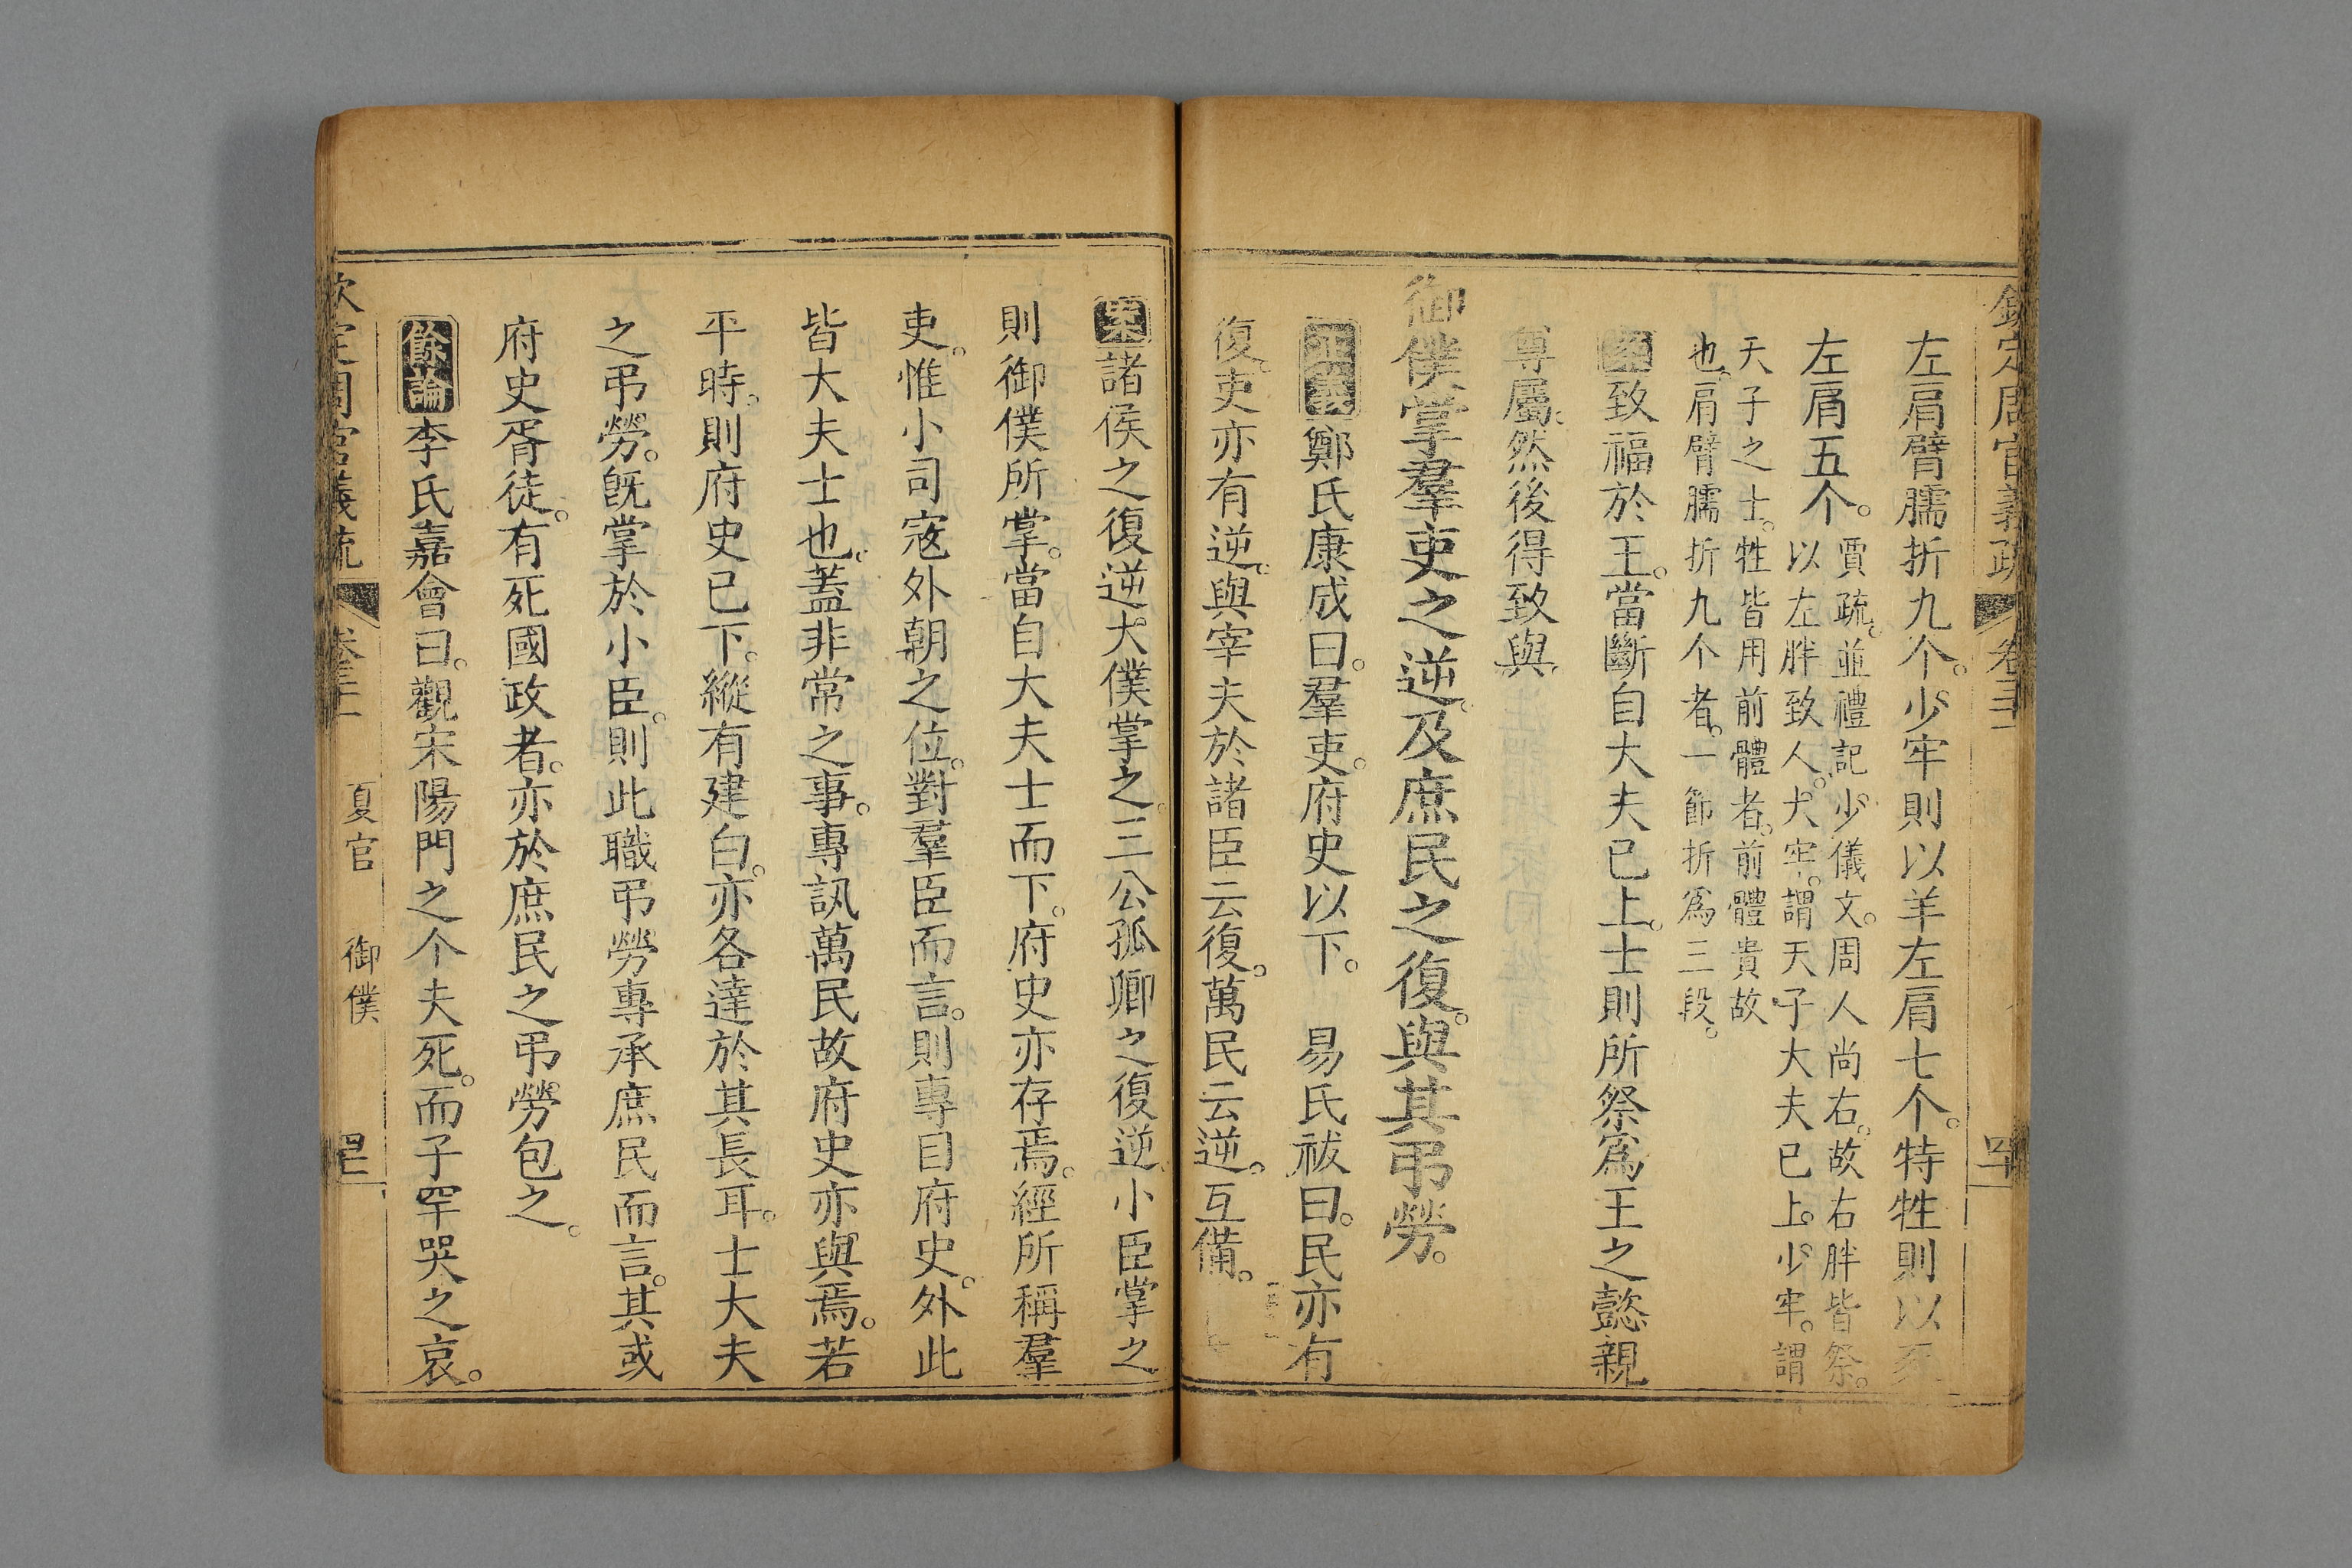 欽定周官義疏 卷三十一 四十
左肩臂臑折九个。少牢則以羊左肩七个。特牲則以豕
左肩五个。
賈疏。並禮記。少儀文。周人尚右。故右胖皆祭。
以左胖致人。大牢。謂天子大夫已上。少牢。謂
天子之士。牲皆用前體者。前體貴故
也。肩臂臑折九个者。一節折爲三段。
案致福於王。當斷自大夫已上。士則所祭爲王之懿親
尊屬。然後得致與。
御僕掌羣吏之逆。及庶民之復。與其弔勞。
正義鄭氏康成曰。羣吏。府史以下。 易氏祓曰。民亦有
復。吏亦有逆。與宰夫於諸臣云復。萬民云逆。互備。
案諸侯之復逆。大僕掌之。三公孤卿之復逆。小臣掌之
則御僕所掌。當自大夫士而下。府史亦存焉。經所稱羣
吏。惟小司寇外朝之位。對羣臣而言。則專目府史。外此
皆大夫士也。葢非常之事。專訊萬民故府史亦與焉。若
平時。則府史已下。縱有建白。亦各達於其長耳。士大夫
之弔勞。旣掌於小臣。則此職弔勞專承庶民而言。其或
府史胥徒。有死國政者。亦於庶民之弔勞包之。
餘論李氏嘉會曰。觀宋陽門之介夫死。而子罕哭之哀。
欽定周官義疏 卷三十一 夏官 御僕 四十一